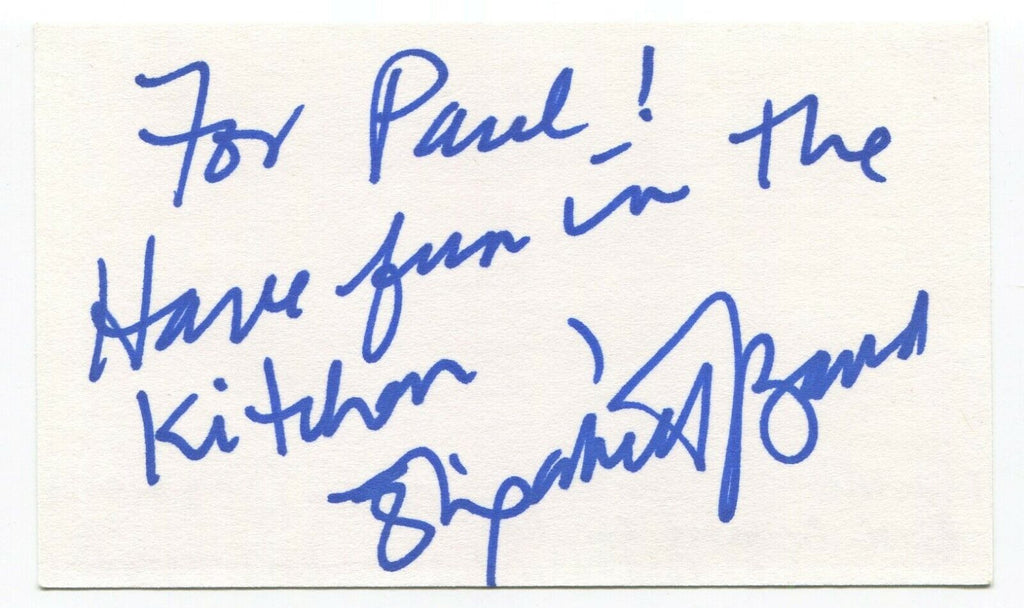 For Paul!
Have fun in the
Kitchen
Elizabeth Baird